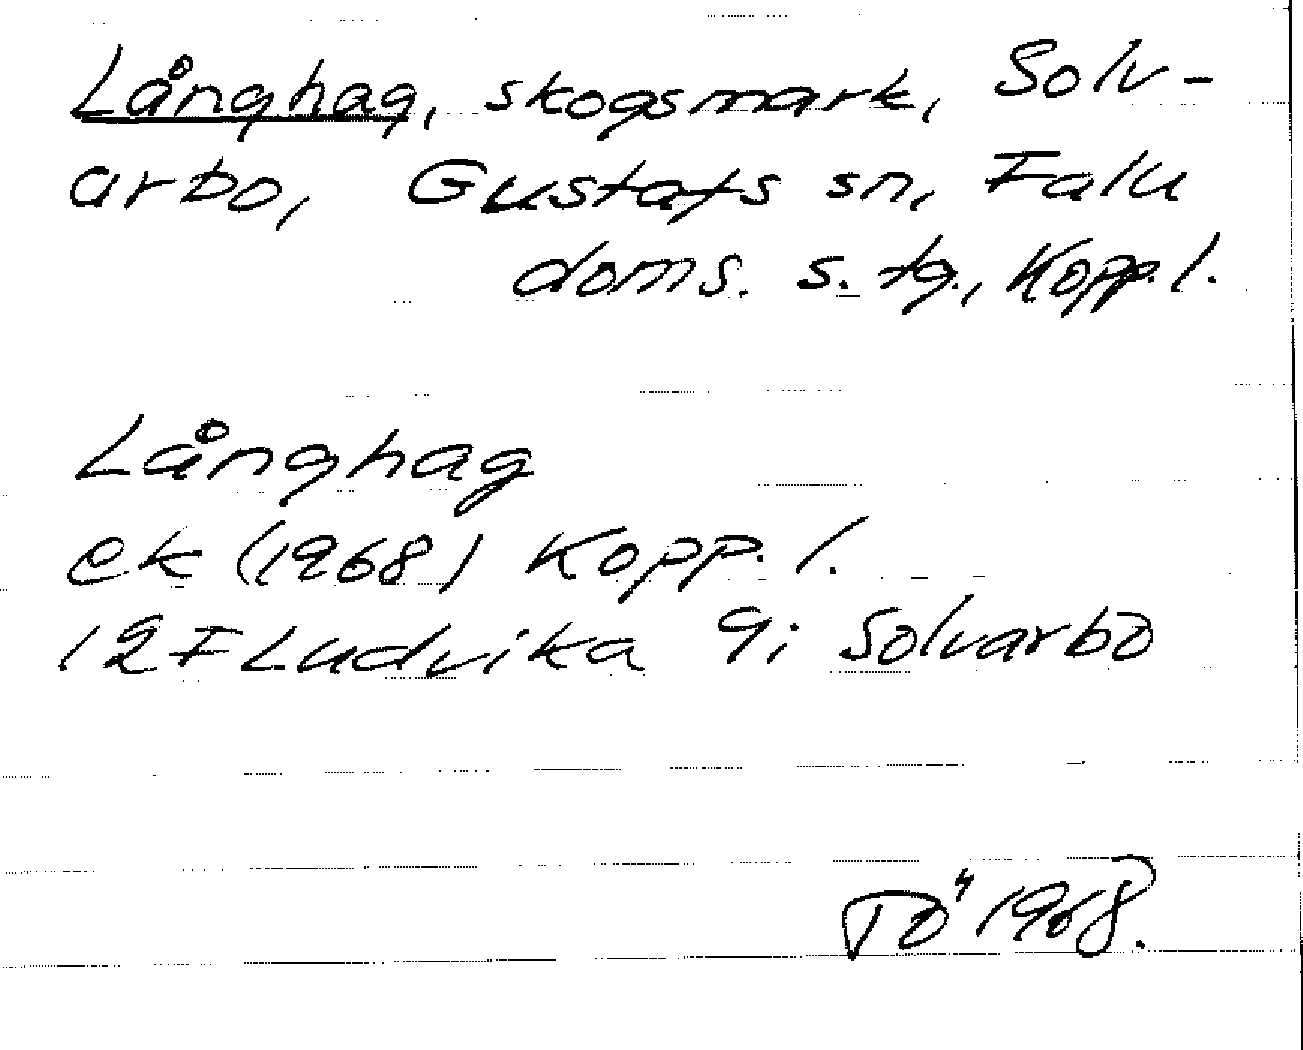 Långhag, skogsmark, Solv-
arbo, Gustafs sn, Falu
doms. s. tg., Kopp. l.
Långhag
ek (1968) Kopp. l.
12F Ludvika 9i Solvarbo
TÖ 1968.